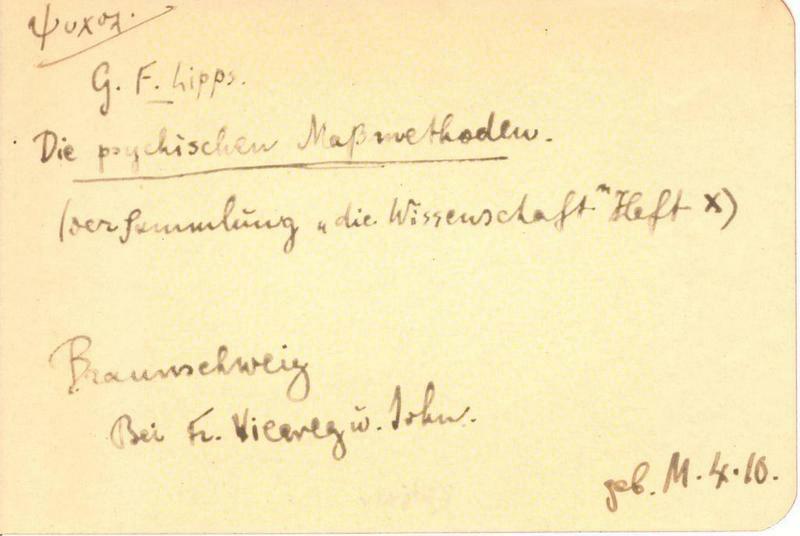 Ψυχολ.
G. F. Lipps.
Die psychischen Maßmethoden.
(der Sammlung „die Wissenschaft" Heft X)
Braunschweig
Bei Fr. Vieweg u. Sohn.
geb. M. 4.10.